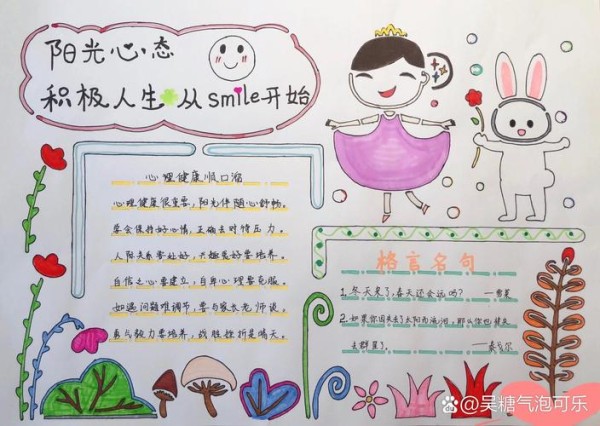 阳光心态
积极人生从smile开始
心理健康顺口溜
心理健康很重要,阳光伴随心舒畅。
要会保持好心情,正确去对待压力。
人际关系要处好,兴趣爱好要培养。
自信之心要建立,自卑心理要克服。
如遇问题难调节,要与家长老师说。
勇气毅力要培养,战胜挫折是晴天。
格言名句
1.冬天来了,春天还会远吗? —雪莱
2.如果你因失去了太阳而流泪,那么你也将失
去群星了。 —泰戈尔
@吴糖气泡可乐